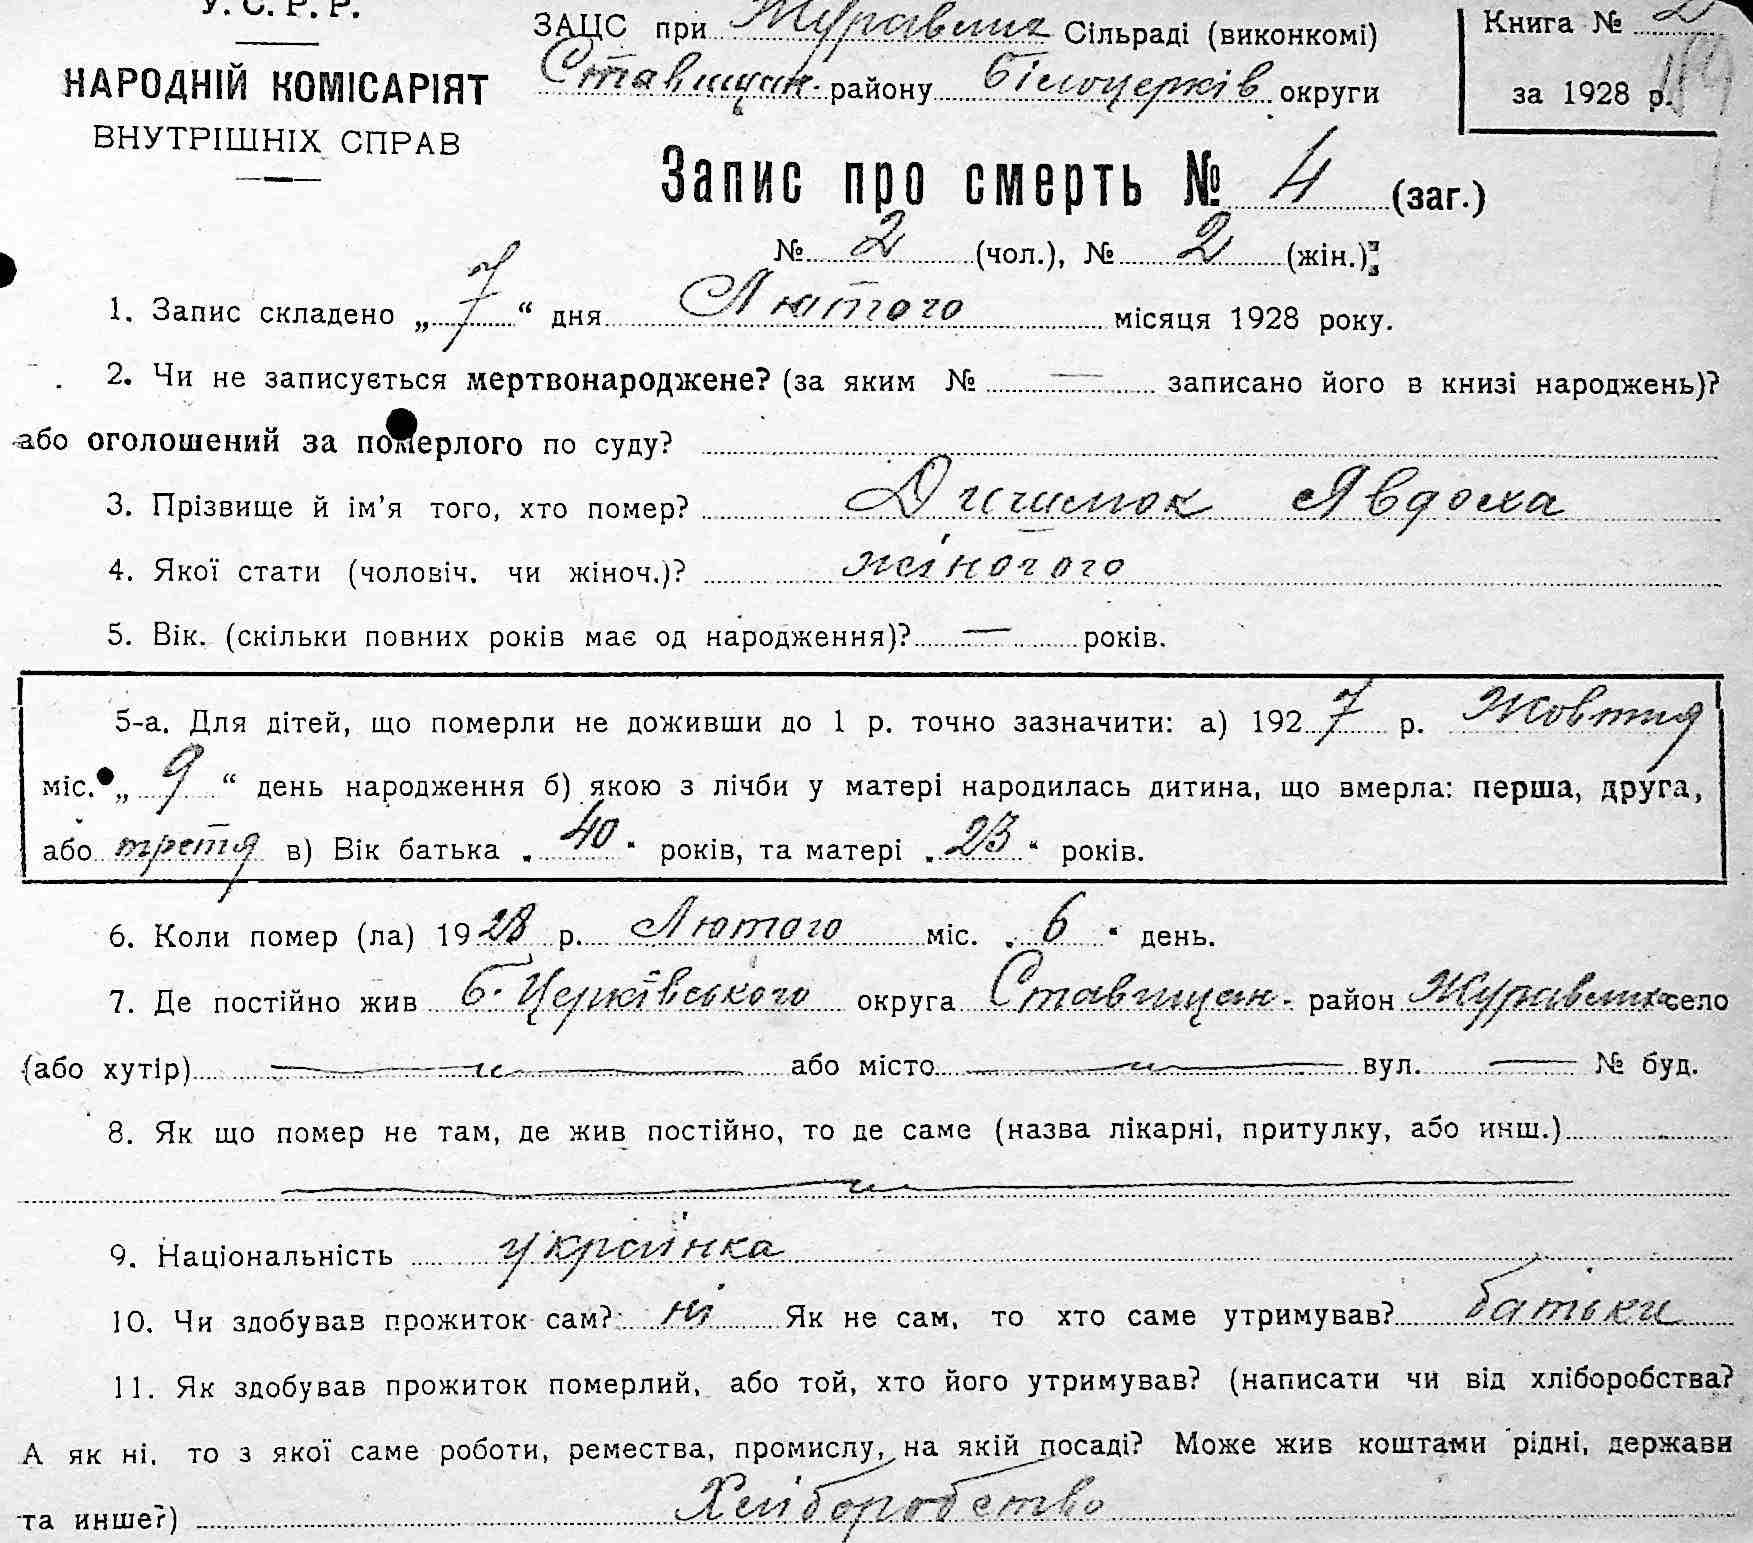 У. С. Р. Р.
НАРОДНІЙ КОМІСАРІЯТ
ВНУТРІШНІХ СПРАВ
ЗАЦС при Журавлиха Сільраді (виконкомі)
Ставищан. району Білоцерків. округи
Книга № 2
за 1928 р.
Запис про смерть № 4 (заг.)
№ 2 (чол.), № 2 (жін.)
1. Запис складено „ 7 “ дня Лютого місяця 1928 року.
2. Чи не записується мертвонароджене? (за яким № — записано його в книзі народжень)?
або оголошений за померлого по суду?
3. Прізвище й ім’я того, хто помер? Явдоха
4. Якої стати (чоловіч. чи жіноч.)? жіночого
5. Вік. (скільки повних років має од народження)? — років.
5-а. Для дітей, що померли не доживши до 1 р. точно зазначити: а) 1927 р. Жовтня
міс. „ 9 “ день народження б) якою з лічби у матері народилась дитина, що вмерла: перша, друга,
або третя в) Вік батька „ 40 “ років, та матері „ 23 “ років.
6. Коли помер (ла) 1928 р. Лютого міс. „ 6 “ день.
7. Де постійно жив Б. Церківського округа Ставищан. район Журавлиха село
(або хутір) — „ — або місто — „ — вул. — № буд.
8. Як що помер не там, де жив постійно, то де саме (назва лікарні, притулку, або инш.)
— „ —
9. Національність українка
10. Чи здобував прожиток сам? ні Як не сам, то хто саме утримував? батьки
11. Як здобував прожиток померлий, або той, хто його утримував? (написати чи від хліборобства?
А як ні, то з якої саме роботи, ремества, промислу, на якій посаді? Може жив коштами рідні, держави
та инше?) Хліборобство